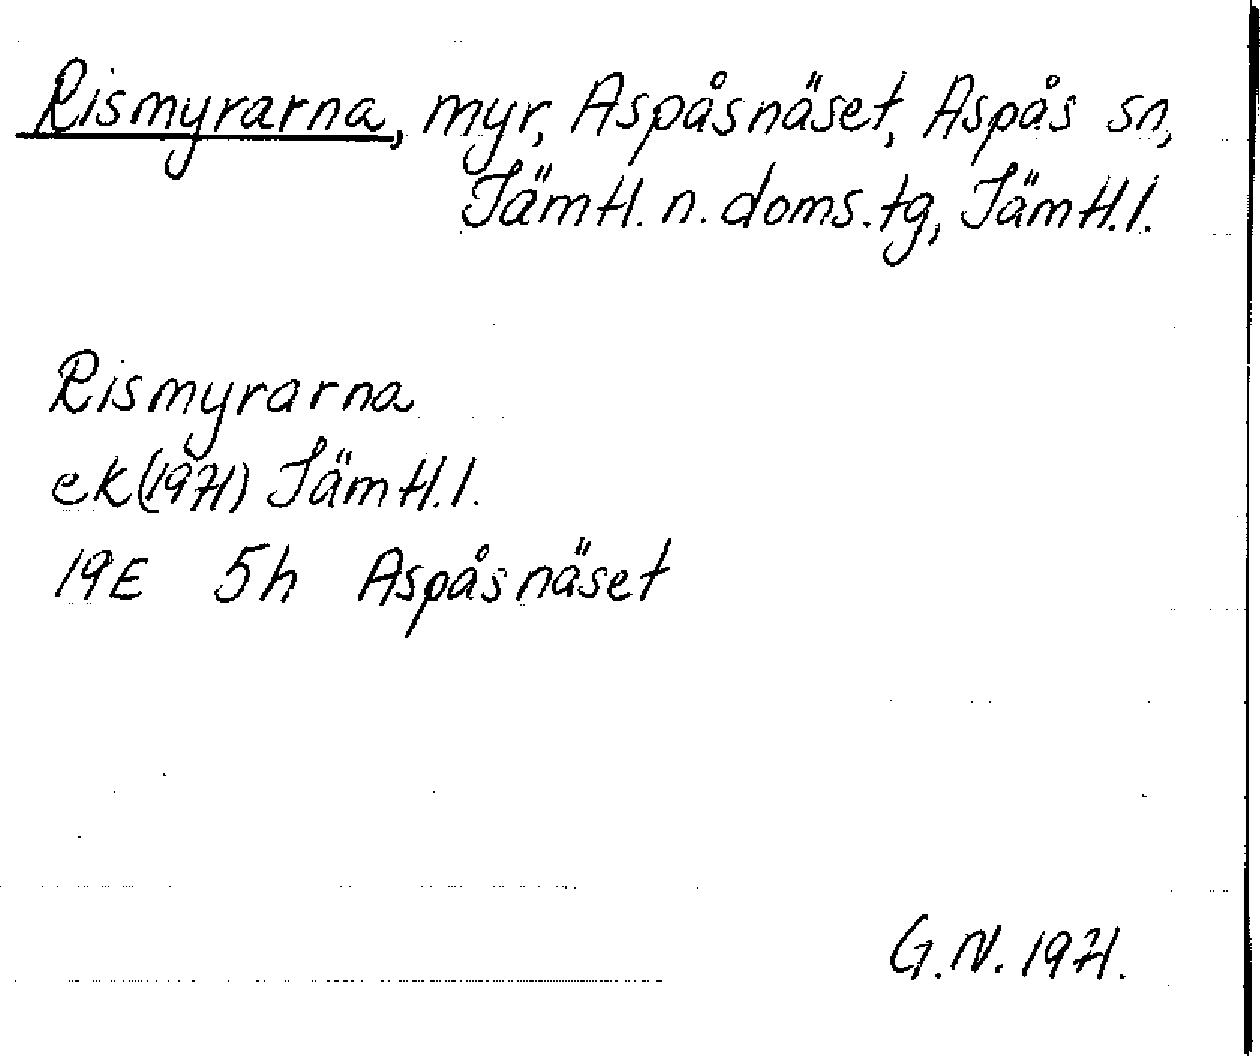 Rismyrarna, myr, Aspåsnäset, Aspås sn,
Jämtl. n. doms. tg, Jämtl. l.
Rismyrarna
ek (1971) Jämtl. l.
19E 5h Aspåsnäset
G.N. 1971.